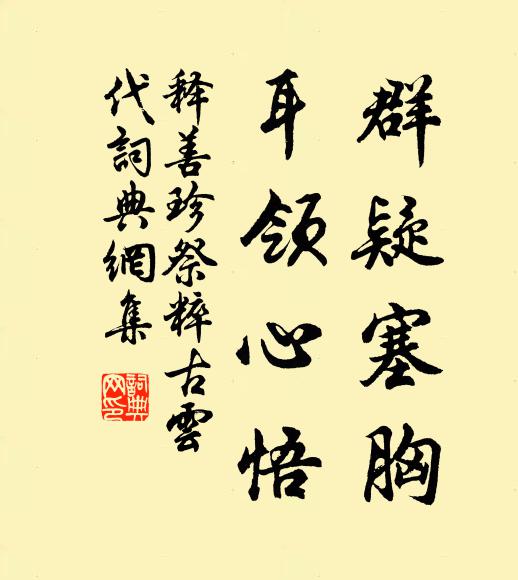 群疑塞胸
耳领心悟
释善珍祭粹古雲
代詞典網集
詞典
网印